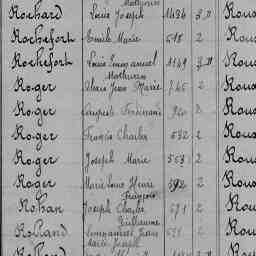 Mathurin
Rochard Louis Joseph 1436 3 D Rou
Rochefort Emile Marie 518 2 Rou
Rochefort Louis Emmanuel 1149 3 D Rou
Mathurin
Roger Alexis Jean Marie 745 2 Rou
Roger Auguste Ferdinand 920 2 Rou
Roger Francis Charles 532 2 Rou
Roger Joseph Marie 553 2 Rou
Roger Marie Louis Henri 592 2 Rou
François
Rohan Joseph Charles 571 2 Rou
Guillaume
Roland Emmanuel Jean 2 Rou
Marie Joseph